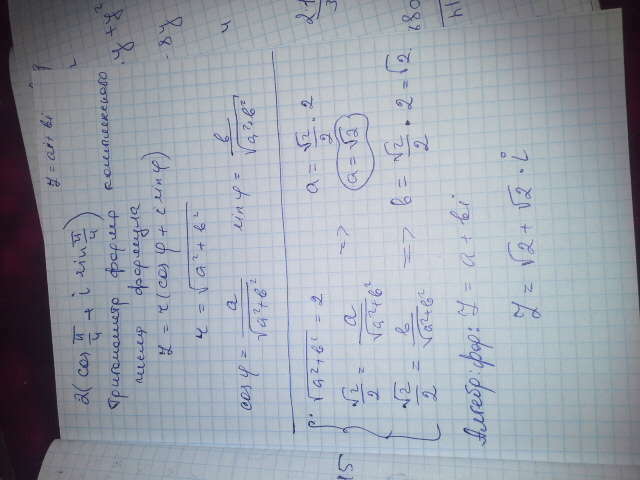 z = a + bi
2(cos π/4 + i sin π/4)
Тригонометр форма комплексного
числа формула
z = r(cos φ + i sin φ)
r = √(a² + b²)
cos φ = a/√(a²+b²) sin φ = b/√(a²+b²)
√(a²+b²) = 2
√2/2 = a/√(a²+b²) => a = √2/2 · 2
a = √2
√2/2 = b/√(a²+b²) => b = √2/2 · 2 = √2.
Алгебр. фор: z = a + bi
z = √2 + √2 · i
15
y + y²
· 8y